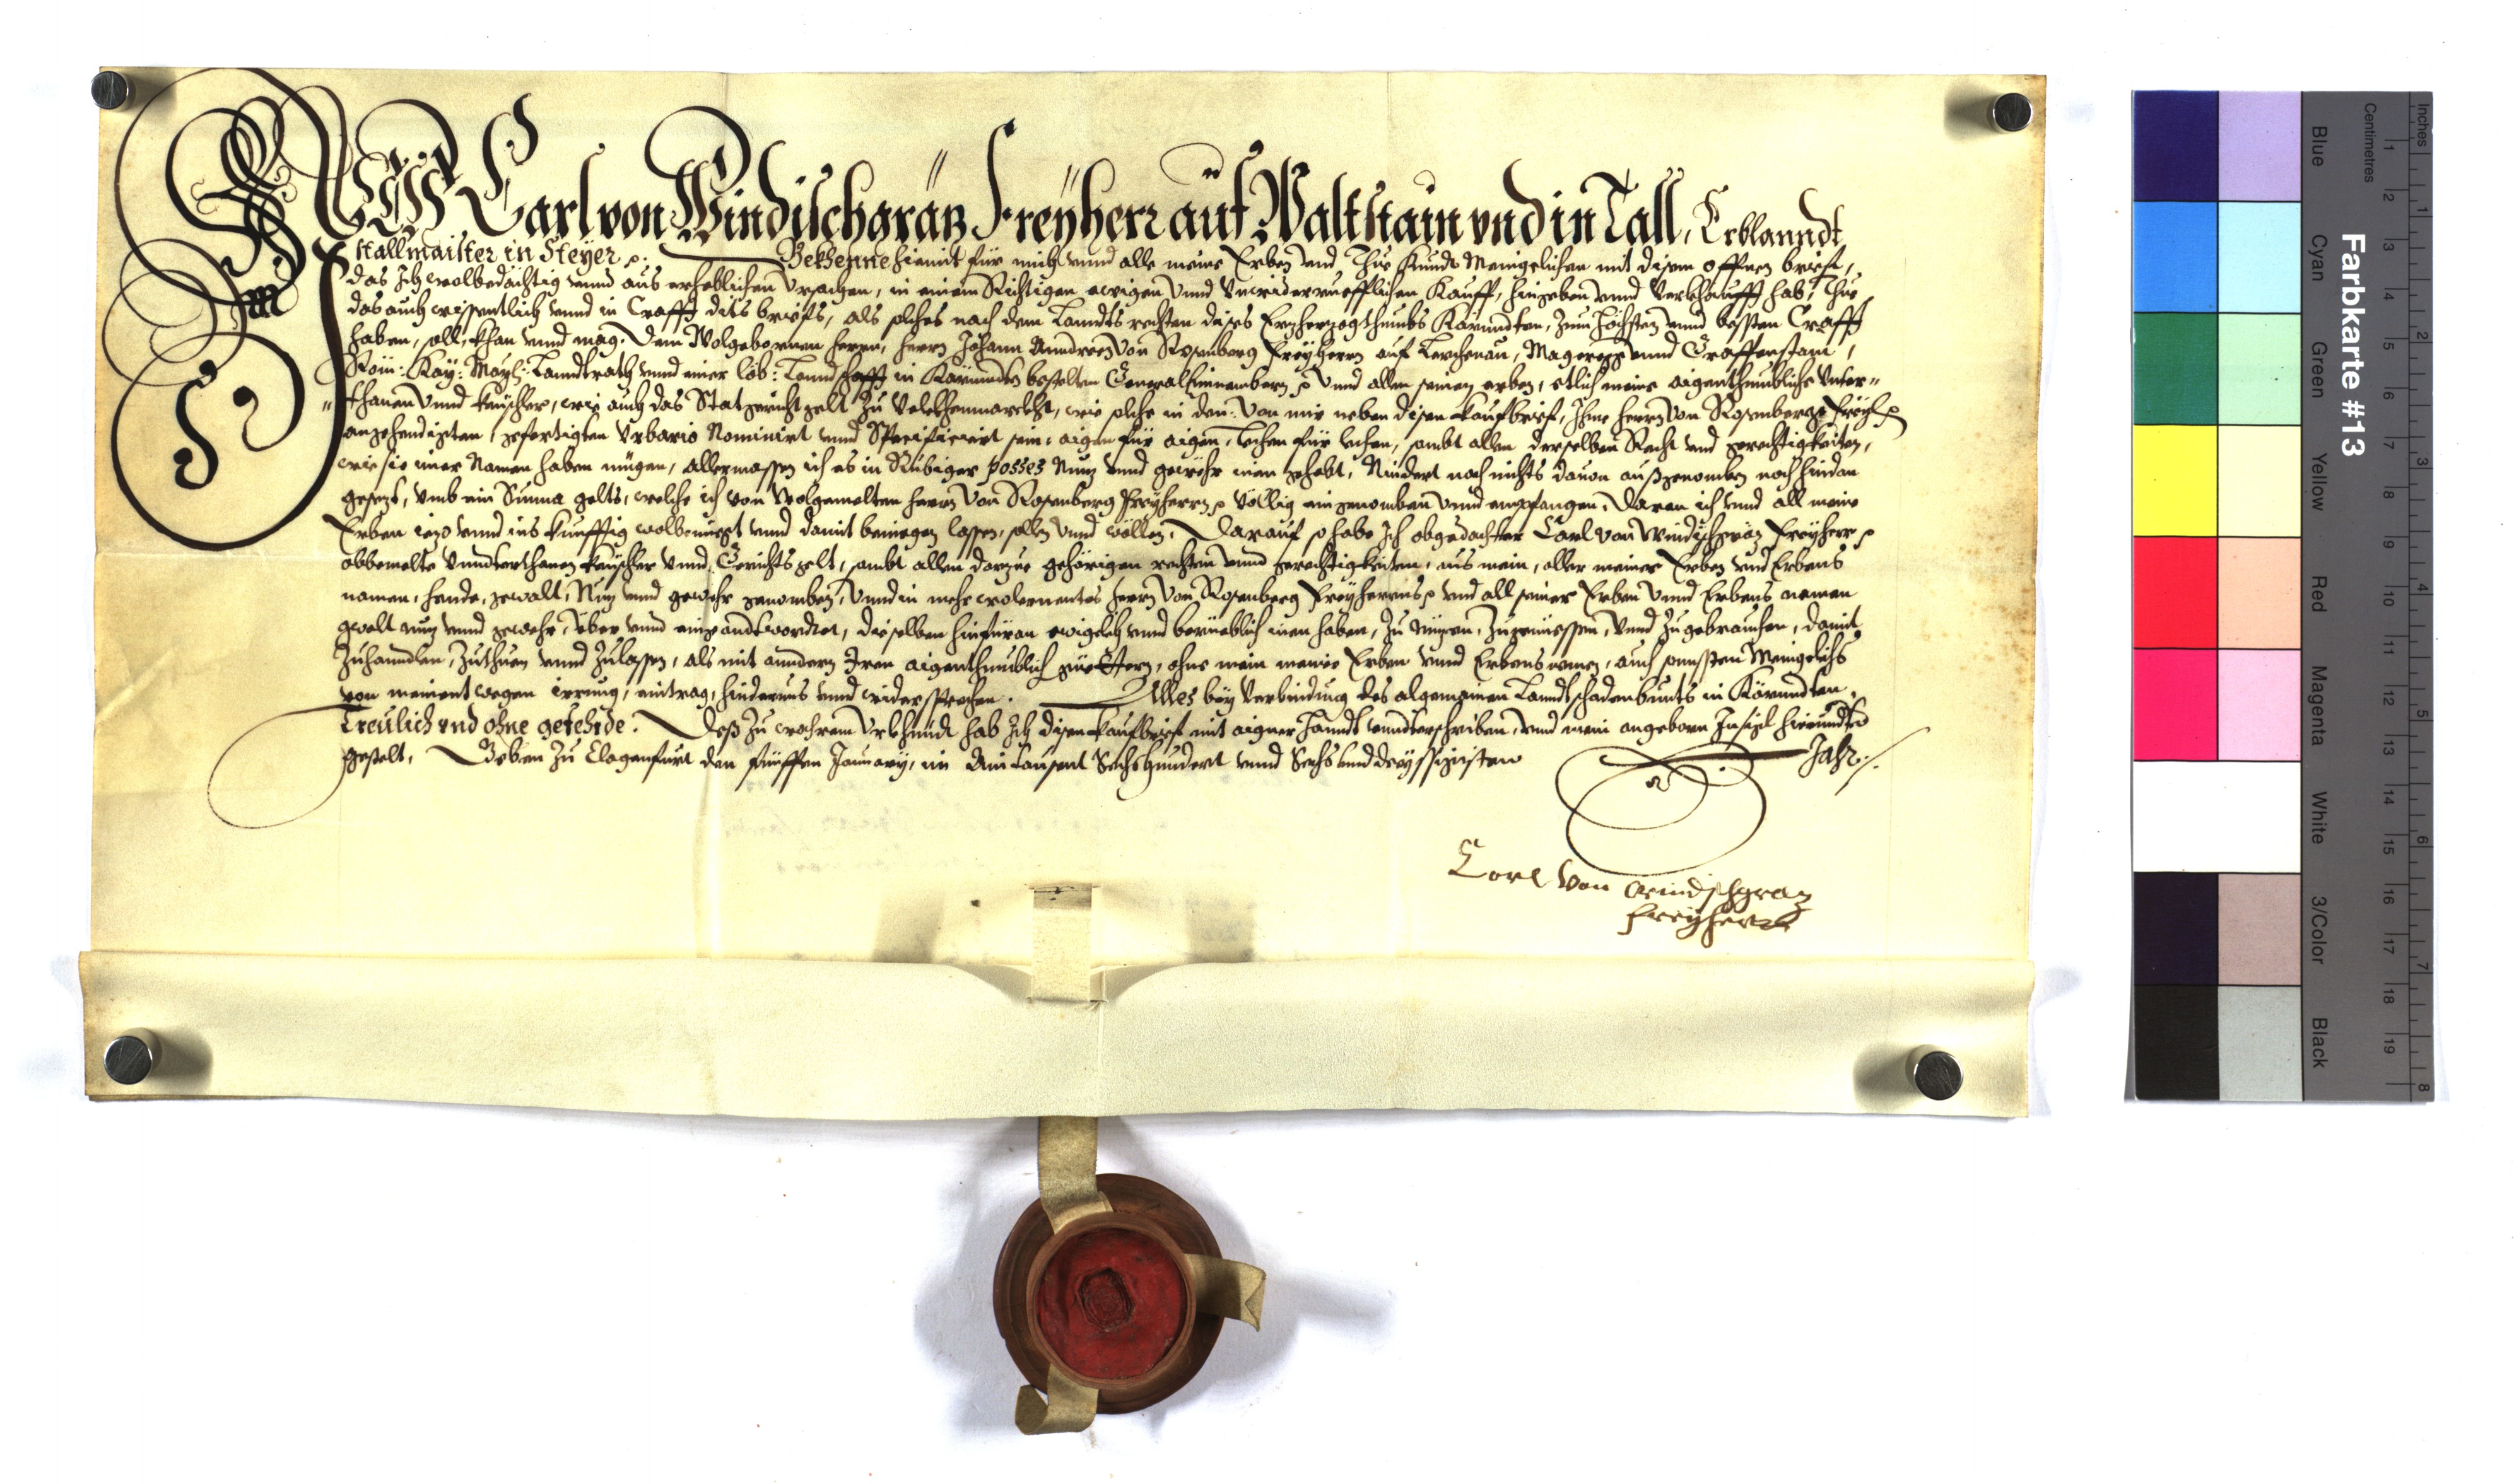 ICH Carl von Windischgräz Freÿherr auf Waltstain vnd in Tall, Erblanndt
stallmaister in Steÿer p. Bekhenne hiemit für mich vnnd alle meine Erben vnd Thue Kundt Menigelichen mit disem offnen brieff,
das Ich wolbedächtig vnnd aus erheblichen Vrsachen, in einem Richtigen ewigen vnnd Vnwiderruefflichen Kauff, hingeben vnnd Verkhaufft hab, Thue
das auch wissentlich vnnd in Crafft dits brieffs, als solches nach dem Lanndts rechten dises Erzherzogthumbs Kärnndten, zum höchsten vnnd bessten Crafft
haben, soll, khan vnnd mag. Dem Wolgebornen herrn, herrn Johann Anndreen Von Rosenberg Freÿherrn auf Lerchenau, Mageregg vnnd Graffenstain,
Röm: Kaÿ: Maÿt: Lanndtrath vnnd einer löb: Lanndschafft in Kärnndten bestelten Generaleinnembern p Vnnd allen seinen erben, etlich meine aigenthumbliche Vnter=
thanen Vnnd keuschler, wie auch das Statgericht gelt zu Velckhenmarckht, wie solche in dem: Von mir neben disen kaufbrief, Ihme herrn Von Rosenberg Freÿh p
angehendigten, gefertigten Vrbario Nominirt vnnd Specificiert sein, aigen für aigen, lehen für lehen, sambt allen derselben Recht vnd gerechtigkeiten,
wie sie imer Namen haben mügen, allermassen ich es in Rübiger posses Nuz vnnd gewöhr inen gehabt, Nindert noch nichts dauon außgenomben noch hindan
gesezt, vmb ein Summa gelts, welche ich von Wolgemelten herrn Von Rosenberg Freÿherrn p völlig eingenomben vnnd empfangen, Daran ich vnnd all meine
Erben iezo vnnd ins kunfftig wolbenüegt vnnd damit beniegen lassen, sollen vnnd wöllen, Darauf so habe Ich obgedachter Carl von Windischgräz Freÿherr p
obbemelte Vnndterthanen keuschler vnnd Gerichts gelt, sambt allen darzue gehörigen rechten vnnd gerechtigkeiten, aus mein, aller meiner Erben vnd Erbens
namen, hende, gewalt, Nuz vnnd gewehr genomben, Vnnd in mehr wolernentes herrn Von Rosenberg Freÿherrns p vnd all seiner Erben vnnd Erbens namen
gwalt nuz vnnd gewehr, über vnnd eingeandtwordtet, dieselben hinfüran ewigelich vnnd berüeblich inen haben, zu nuzen, zugeniessen, vnnd zugebrauchen, damit
zuhanndlen, zuthuen vnnd zulassen, als mit anndern Iren aigenthumblich güettern, ohne mein meiner Erben vnnd Erbens erben, auch sonssten Menigelichs
von meinent wegen irrung, eintrag, hindernus vnnd widersprechen. Alles beÿ Verbindung des algemainen Lanndtschadenbundts in Kärnndten,
Treulich vnd ohne gefehrde. Deß zu wahrem Vrkhundt hab Ich disen kaufbrief mit aigner hanndt vnndterschriben, vnnd mein angeborn Insigl hieundter
gestelt, Geben zu Clagenfurt den fünfften January, im Aintausent Sechshundert vnnd Sechsvnddreÿssigisten Jahr.
Carl Von Windischgraz
Freÿherr
Farbkarte #13
Inches
Centimetres
Blue
Cyan
Green
Yellow
Red
Magenta
White
3/Color
Black
1 2 3 4 5 6 7 8 9 10 11 12 13 14 15 16 17 18 19
1 2 3 4 5 6 7 8